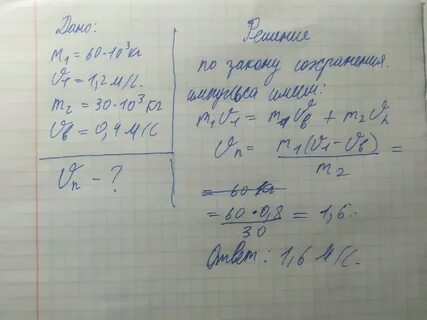 Дано:
m₁ = 60·10³ кг
υ₁ = 1,2 м/с.
m₂ = 30·10³ кг
υв = 0,4 м/с
υп - ?
Решение
по закону сохранения
импульса имеем:
m₁υ₁ = m₁υв + m₂υп
υп = m₁(υ₁-υв) / m₂ =
= 60 кг
= 60·0,8 / 30 = 1,6.
Ответ: 1,6 м/с.